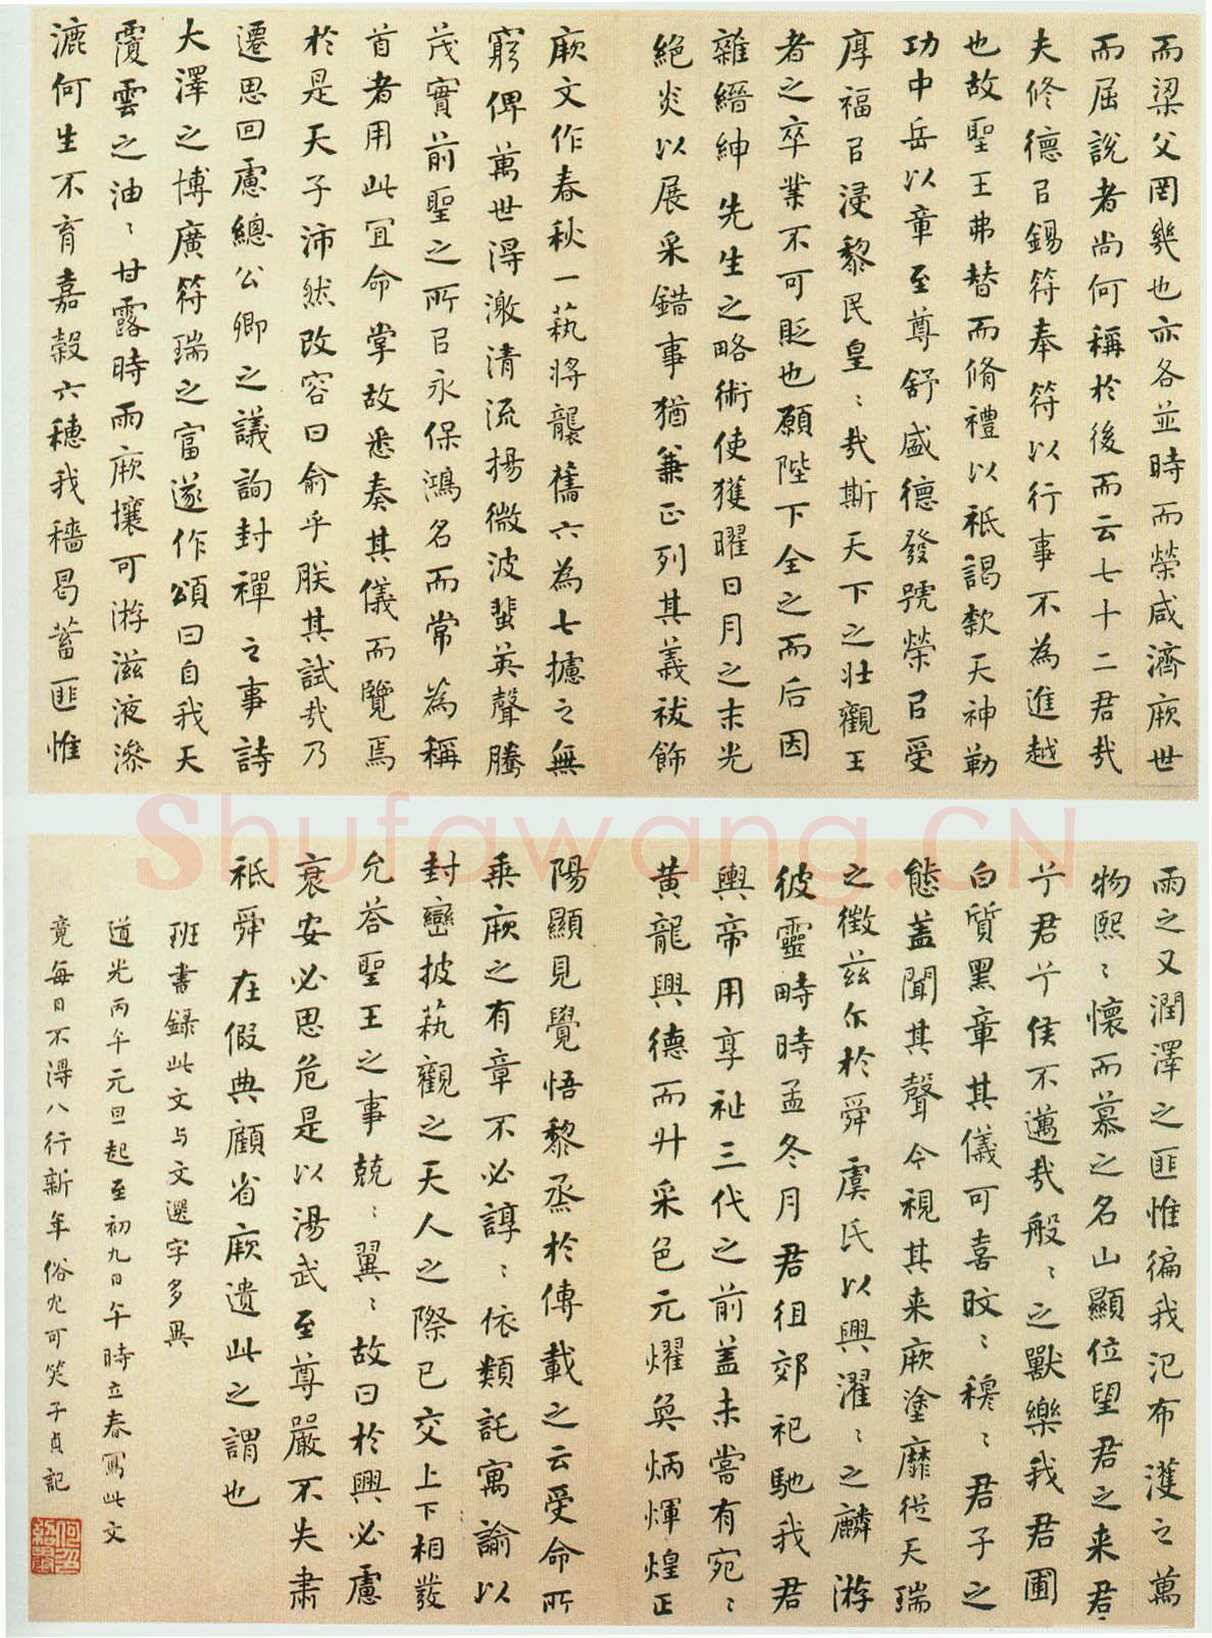 而梁父罔幾也亦各並時而榮咸濟厥世
而屈說者尚何稱於後而云七十二君哉
夫修德㠯錫符奉符以行事不為進越
也故聖王弗替而脩禮以祇謁款天神勒
功中岳以章至尊舒盛德發號榮㠯受
厚福㠯浸黎民皇〻哉斯天下之壯觀王
者之卒業不可貶也願陛下全之而后因
雜縉紳先生之略術使獲曜日月之末光
絕炎以展采錯事猶兼正列其義祓飾
厥文作春秋一蓺將襲舊六為七攄之無
窮俾萬世得激清流揚微波蜚英聲騰
茂實前聖之所㠯永保鴻名而常為稱
首者用此宜命掌故悉奏其儀而覽焉
於是天子沛然改容曰俞乎朕其試哉乃
遷思回慮總公卿之議詢封禪之事詩
大澤之博廣符瑞之富遂作頌曰自我天
覆雲之油〻甘露時雨厥壤可游滋液滲
漉何生不育嘉穀六穗我穡曷蓄匪惟
雨之又潤澤之匪惟徧我氾布濩之萬
物熙〻懷而慕之名山顯位望君之來君〻
兮君兮侯不邁哉般〻之獸樂我君圃
白質黑章其儀可喜旼〻穆〻君子之
態蓋聞其聲今視其來厥塗靡從天瑞
之徵茲尒於舜虞氏以興濯〻之麟游
彼靈畤時孟冬月君徂郊祀馳我君
輿帝用享祉三代之前蓋未嘗有宛〻
黃龍興德而升采色元燿奐炳煇煌正
陽顯見覺悟黎烝於傳載之云受命所
乘厥之有章不必諄〻依類託寓諭以
封巒披蓺觀之天人之際已交上下相發
允荅聖王之事兢〻翼〻故曰於興必慮
衰安必思危是以湯武至尊嚴不失肅
祇舜在假典顧省厥遺此之謂也
班書錄此文与文選字多異
道光丙午元旦起至初九日午時立春寫此文
竟每日不得八行新年俗冗可笑子貞記
何紹基
Shufawang.CN